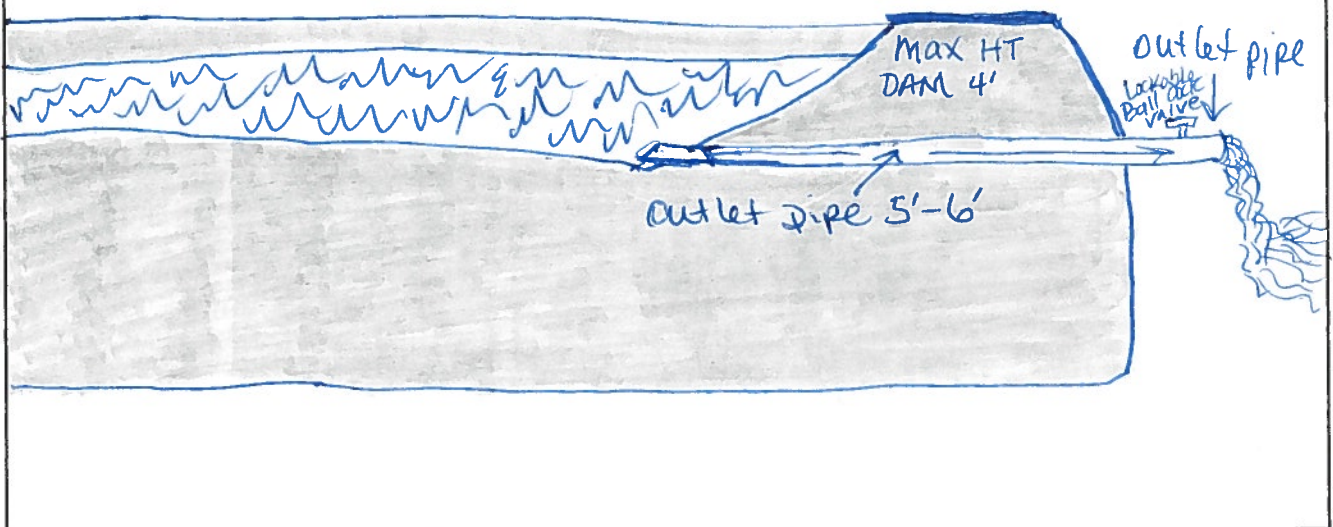 Max HT
DAM 4'
Outlet pipe
Lockable
Ball Cock
Valve
Outlet pipe 5'-6'